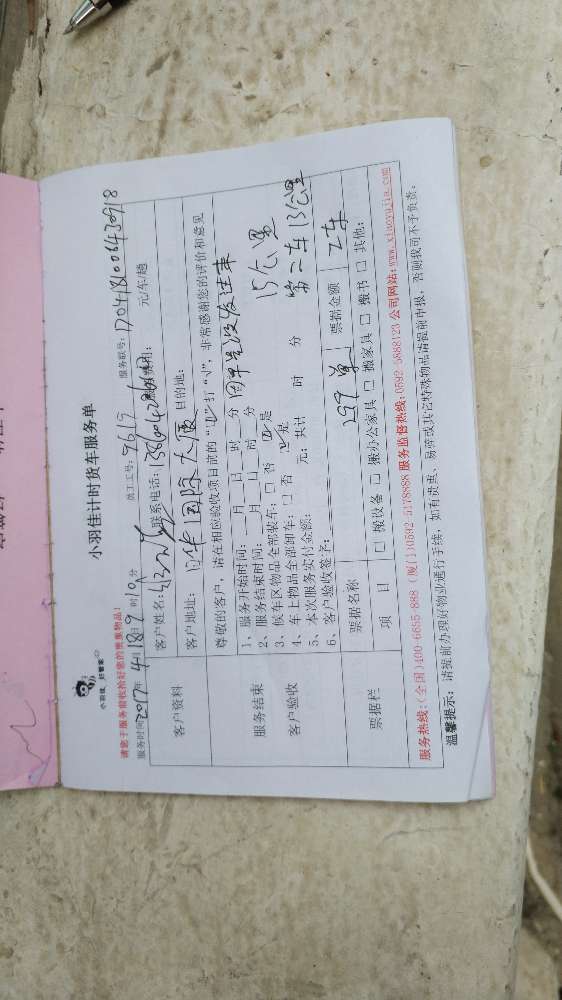 小羽佳计时货车服务单
小羽佳，好管家
请您于服务前收拾好您的贵重物品!
服务时间2017年4月18日9时10分 员工工号: 9619 服务联号: 1704181004430918
客户资料
客户姓名: 联系电话: 元/车/趟
客户地址: 日华国际大厦 目的地:
尊敬的客户，请在相应验收项目前的“☑”打“√”，非常感谢您的评价和意见
服务结束
客户验收
1、服务开始时间: 月 日 时 分
2、服务结束时间: 月 日 时 分
15公里
3、候车区物品全部装车: □ 否 ☑是
4、车上物品全部卸车: □ 否 ☑是
第二车13公里
5、本次服务实付金额: 元; 共计 时 分
6、客户验收签字:
票据栏
票据名称 票据金额 2车
项 目 □ 搬设备 □ 搬办公家具 □ 搬家具 □ 搬书 □ 其他:
服务热线:(全国)400-6655-888 (厦门)0592-5178888 服务监督热线:0592-5888123 公司网站:www.xiaoyujia.com
温馨提示: 请提前办理好物业通行手续，如有贵重、易碎或其它特殊物品请提前申报，否则我司不予负责。